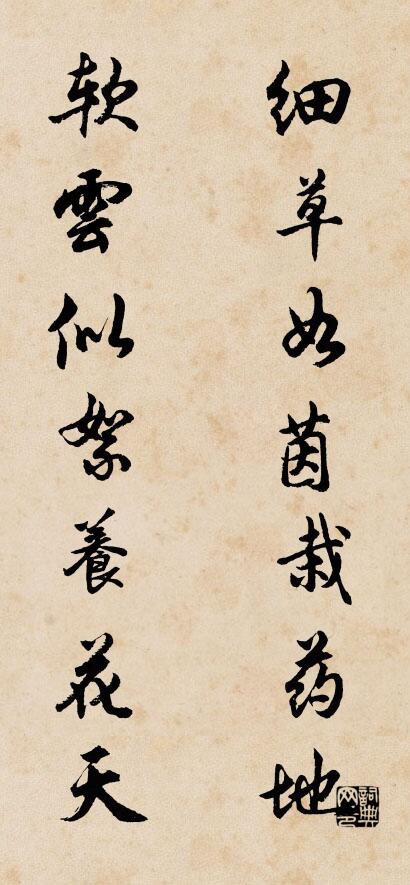 细草如茵栽药地
軟雲似絮養花天
詞典网